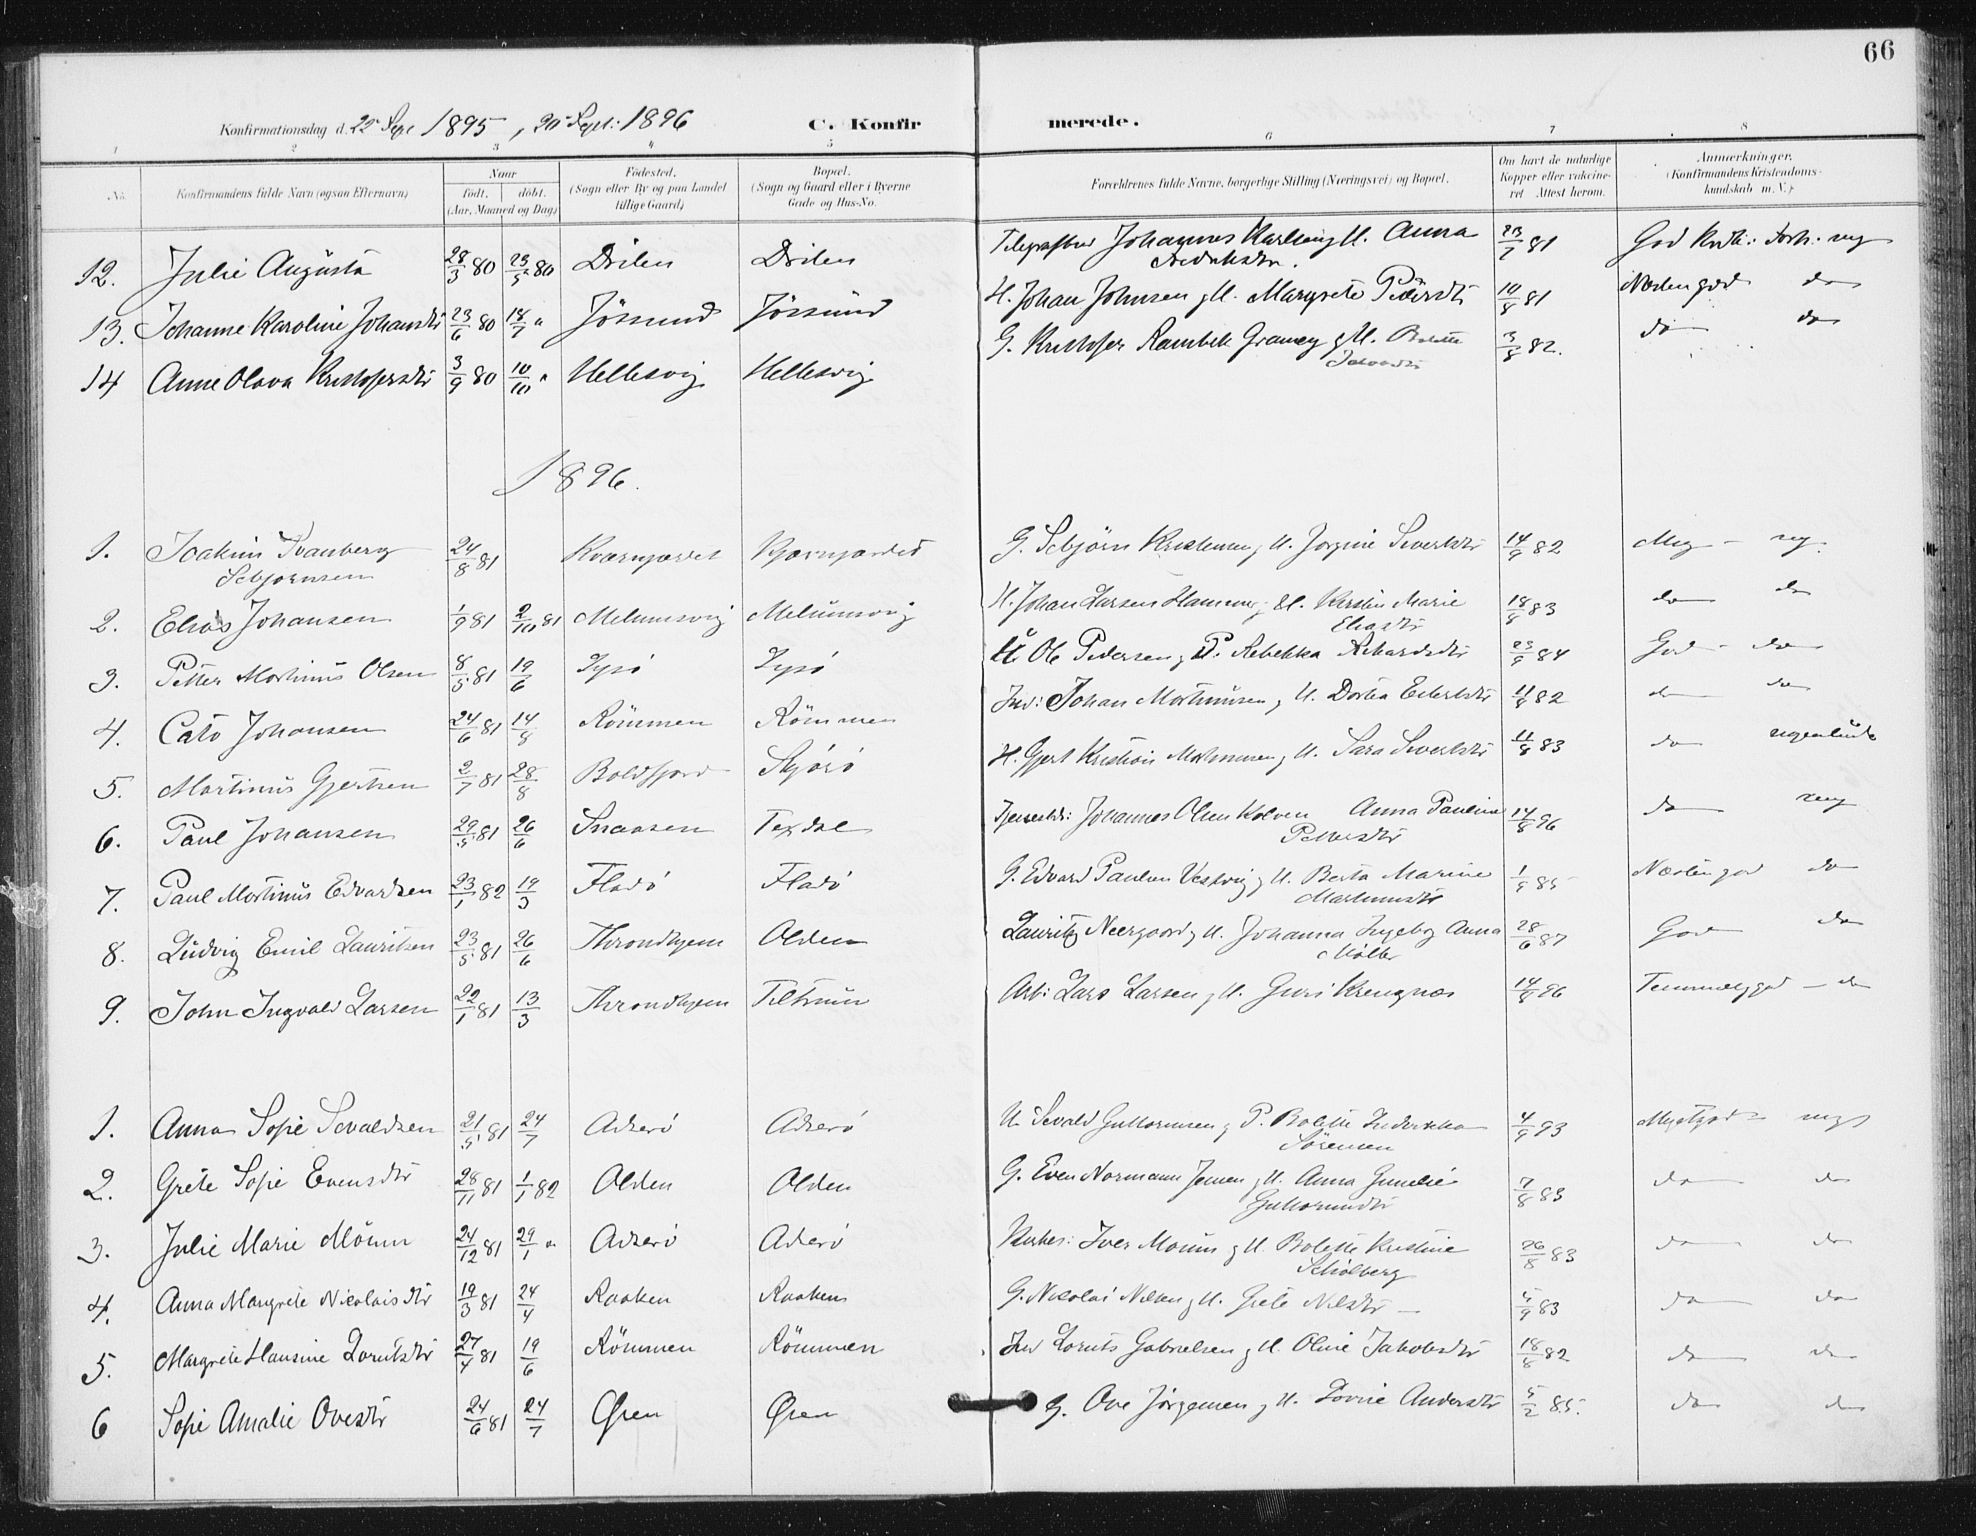 66
Konfirmationsdag d. 22 Sept 1895, 20 Sept: 1896 C. Konfirmerede.
1 2 3 4 5 6 7 8
No. Konfirmandens fulde Navn (ogsaa Efternavn) Naar født, døbt. (Aar, Maaned og Dag) Fødested. (Sogn eller By og paa Landet tillige Gaard) Bopæl. (Sogn og Gaard eller i Byerne Gade og Hus-No. Forældrenes fulde Navne, borgerlige Stilling (Næringsvei) og Bopæl. Om havt de naturlige Kopper eller vaccineret Attest herom. Anmærkninger. (Konfirmandens Kristendomskundskab m. V.)
12. Julie Augusta 28/3 80 23/5 80 Drilen Drilen Johannes Karlsen g H. Anna 23/7 81 God
13. Johanne Karoline Johansdtr 23/6 80 18/7 " Jøssund Jøssund H. Johan Johnsen g H. Margrete Pedersdtr 10/8 81 Næsten god do
14 Anne Olava Kristofersdtr 3/9 80 10/10 " Hellesvig Hellesvig G. Kristofer Rambek g H. 3/8 82. do do
1896.
1. Joakim Svanberg 24/8 81 Kværngjerdet G. Sebjørn g H. Jørgine Sivertsdtr 14/9 82 Meg
Sebjørnsen
2. Elias Johansen 1/9 81 2/10 81 Melumsvig Melumsvig H. Johan Larsen g H. Kirstin Marie 18/8 83 do do
Eliasdtr
3. Petter Martinus Olsen 8/5 81 19/6 H. Ole Pedersen g P. Rebekka 84 God do
4. Cato Johansen 24/6 81 14/8 Römmen Römmen Ind: Johan Martinusen g H. Dortea 11/8 82 do do
5. Martinus Gjertsen 2/7 81 28/8 Boldfjord H. Gjert Kristian Martinusen g H. Sara Sivertsdtr 11/8 83 do
6. Paul Johansen 29/5 81 26/6 Snaasen Texdal Johannes Olsen Kolven Anna Paulina 14/8 96 do
Pettersdtr
7. Paul Martinus Edvardsen 23/1 82 19/3 Fladø Fladø G. Edvard Paulsen g H. Berta Marine 85 Næsten god do
Martinusdtr
8. Ludvig Emil Lauritsen 23/5 81 26/6 Throndhjem Olden Lauritz Neergaard g H. Johanna Ingeborg Anna 28/6 87 God do
Møller
9. John Ingvald Larsen 22/1 81 13/3 Throndhjem Teltrum Arb: Lars Larsen g H. Guri 14/8 96 Temmelig god do
1. Anna Sofie Sevaldsen 21/5 81 24/7 Adserø Adserø Sevald Guttormsen g P. Bolette 4/9 93
Sørensen
2. Grete Sofie Evensdtr 28/11 81 1/1 82 Olden Olden G. Even Normann Jensen g H. Anna 7/8 83 do do
Guttormsdtr
3. Julie Marie Moum 24/12 81 29/1 " Adserø Adserø Iver Moum g H. Bolette Kristine 26/8 83 do do
Schjølberg
4. Anna Margrete Nicolaisdtr 19/3 81 24/4 Raaken Raaken G. Nicolai Nilsen g H. Grete Nilsdtr 83 do do
5. Margrete Hansine Lorntsdtr 27/4 81 19/6 Römmen Römmen Ind Lornts Gabrielsen g H. Oline Jakobsdtr 18/8 82 do do
6 Sofie Amalie Ovesdtr 24/6 81 24/7 Øren Øren G. Ove Jørgensen g H. Lovise Andersdtr 5/2 85. do do